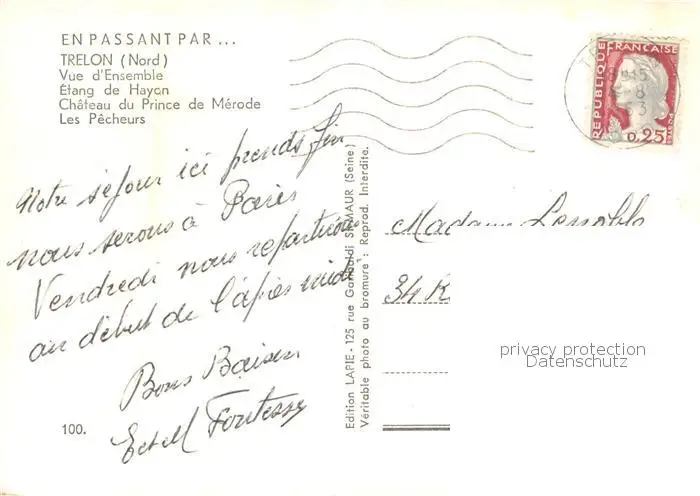 EN PASSANT PAR ...
TRELON (Nord)
Vue d'Ensemble
Étang de Hayon
Château du Prince de Mérode
Les Pêcheurs
Notre séjour ici prends fin
nous serons à Paris
Vendredi nous repartirons
au début de l'après midi
Bons Baisers
100.
Edition LAPIE - 125 rue Garibaldi ST-MAUR (Seine)
Véritable photo au bromure : Reprod. Interdite.
REPUBLIQUE FRANÇAISE
0,25
Madame
34 R
privacy protection
Datenschutz